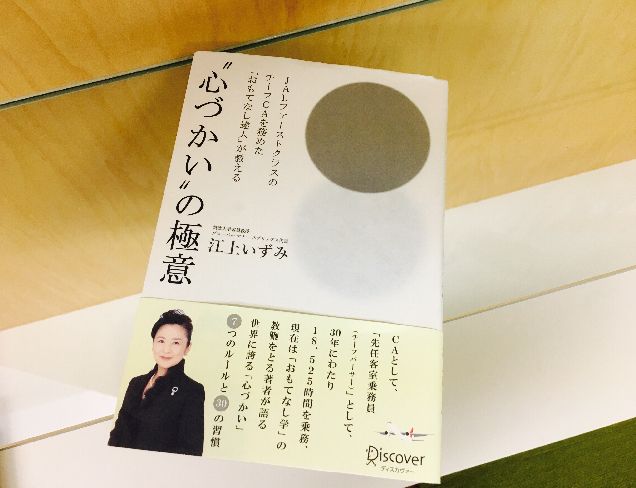 JALファーストクラスの
チーフCAを務めた
「おもてなし達人」が教える
"心づかい"の極意
江上いずみ
CAとして、
「先任客室乗務員
(チーフパーサー)」として、
30年にわたり
18,525時間を乗務、
現在は「おもてなし学」の
教鞭をとる著者が語る
世界に誇る「心づかい」
7つのルールと30の習慣
Discover
ディスカヴァー